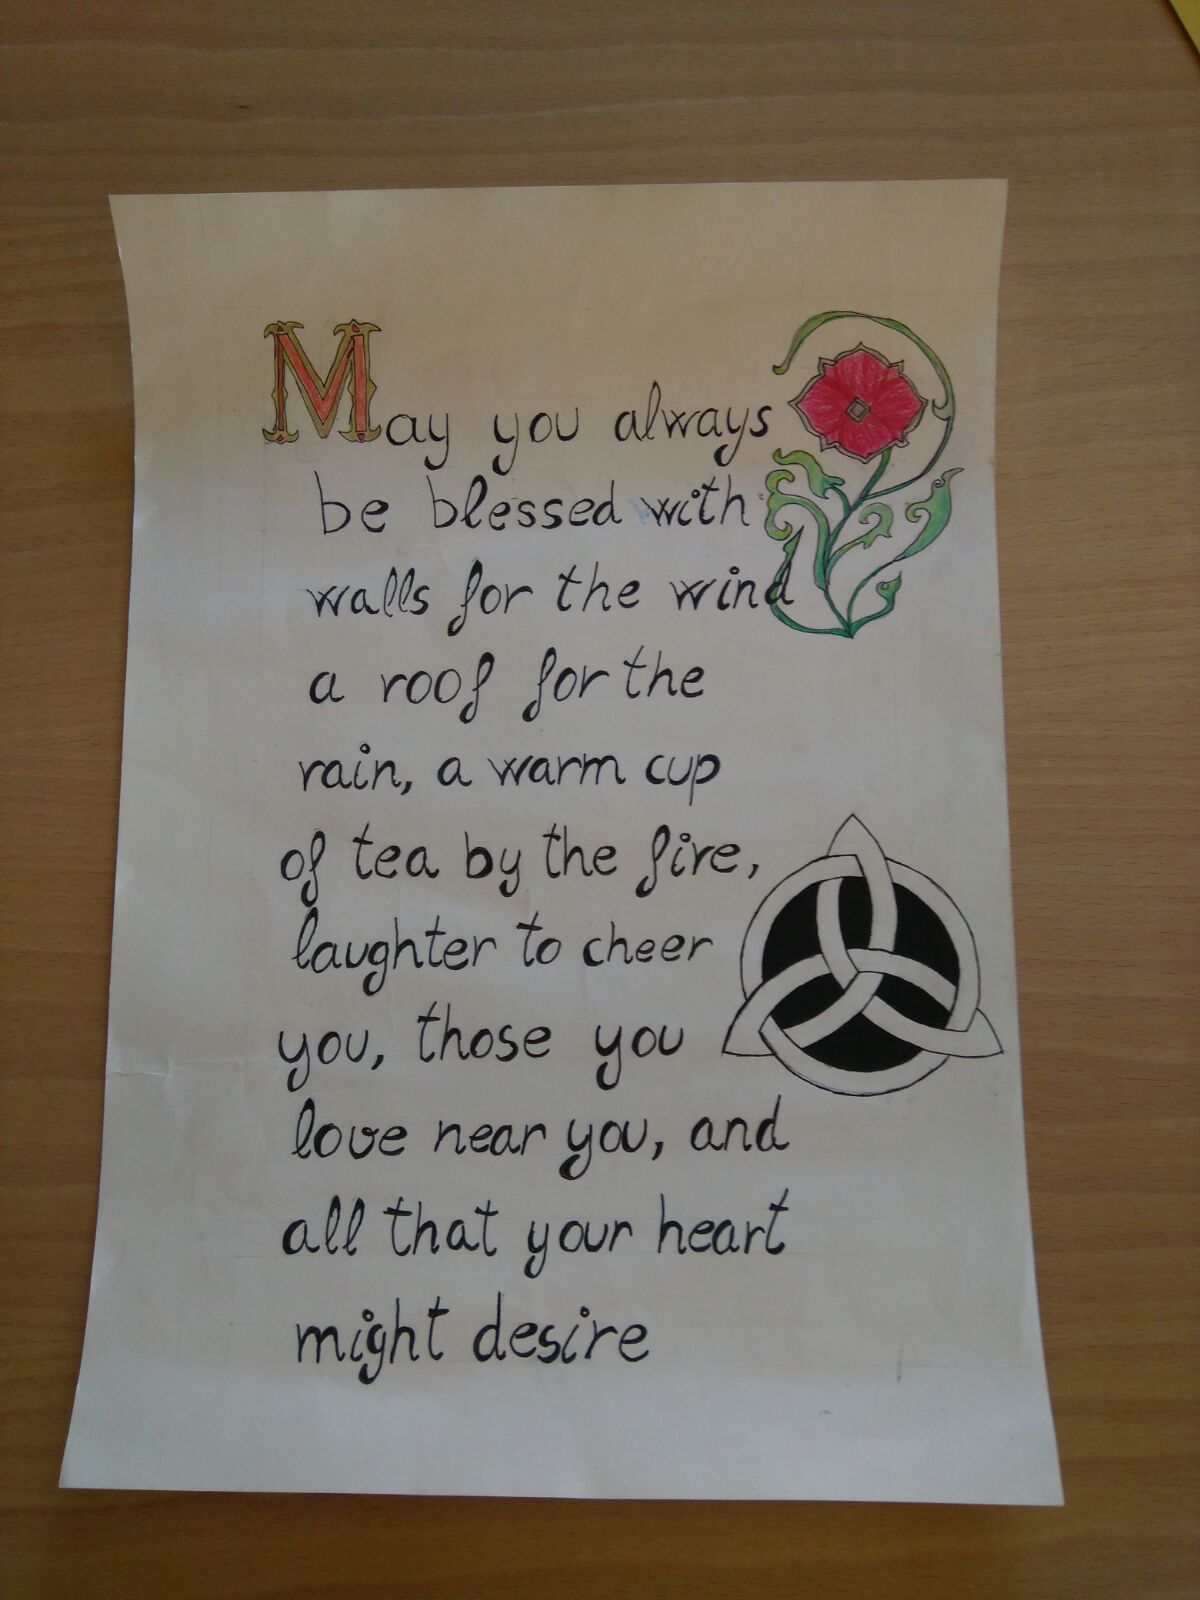 May you always
be blessed with
walls for the wind
a roof for the
rain, a warm cup
of tea by the fire,
laughter to cheer
you, those you
love near you, and
all that your heart
might desire